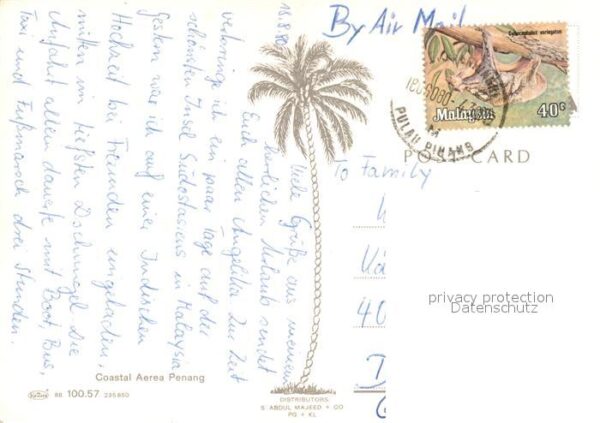 By Air Mail
Cynocephalus variegatus
Malaysia 40c
PULAU PINANG
POST CARD
To Family
40
privacy protection
Datenschutz
15880
Viele Grüße aus meinem
herrlichen Urlaub sendet
Euch allen Angelika Zur Zeit
verbringe ich ein paar Tage auf der
schönsten Insel Südostasiens in Malaysia
Gestern war ich auf einer Indischen
Hochzeit bei Fremden eingeladen,
mitten im tiefsten Dschungel Die
Anfahrt allein dauerte mit Boot, Bus,
Taxi und Fußmarsch drei Stunden.
Coastal Aerea Penang
88 100.57 235850
DISTRIBUTORS
S ABDUL MAJEED + CO
PG + KL